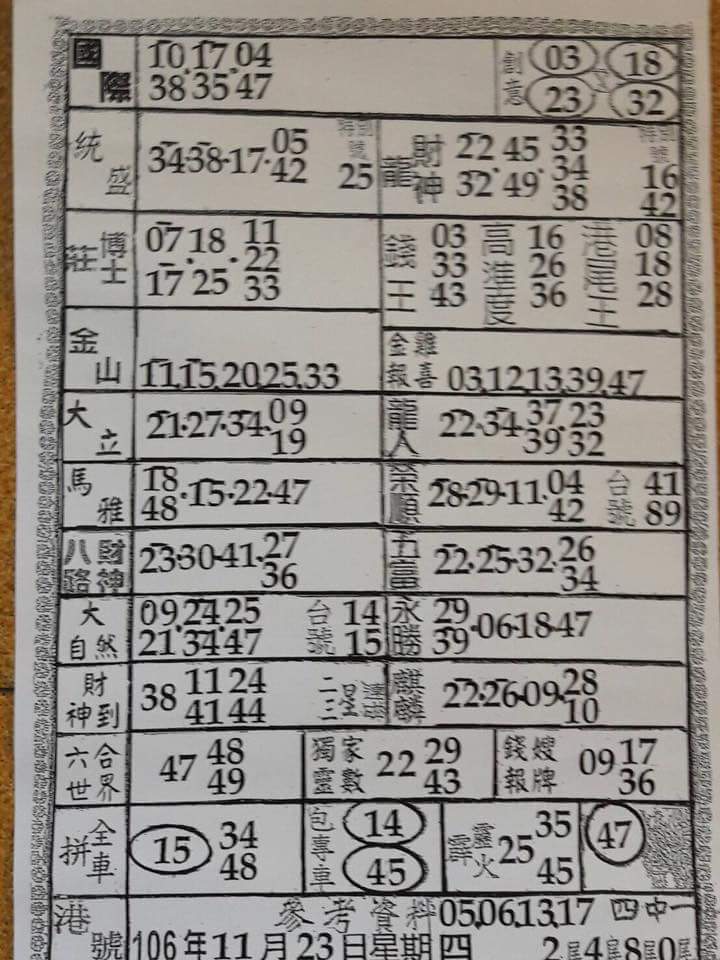 國際 10 17 04
38 35 47
創意 03 18
23 32
統盛 34·38·17·05
42
特別號 25
龍 財神 22 45 33
32 49 34
38
特別號 16
42
莊 博士 07 18 11
17 25 22
33
錢王 03
33
43
高進度 16
26
36
港尾王 08
18
28
金山 11,15,20,25,33
金雞報喜 03,12,13,39,47
大立 21·27·34·09
19
龍人 22·34·37·23
39 32
馬雅 18·15·22·47
48
榮順 28·29·11·04
42
台號 41
89
八路財神 23·30·41·27
36
五富 22·25·32·26
34
大自然 09,24,25
21 34 47
台號 14
15
永勝 29·06·18·47
39
財神到 38 11 24
41 44
二三星
麒麟 22·26·09·28
10
六合世界 47 48
49
獨家靈數 22 29
43
錢嫂報牌 09 17
36
全車拼 15 34
48
包專車 14
45
霹靂火 25 35
45
47
港號 參考資料 05,06,13,17 四中一
106年11月23日星期四 2尾4尾8尾0尾